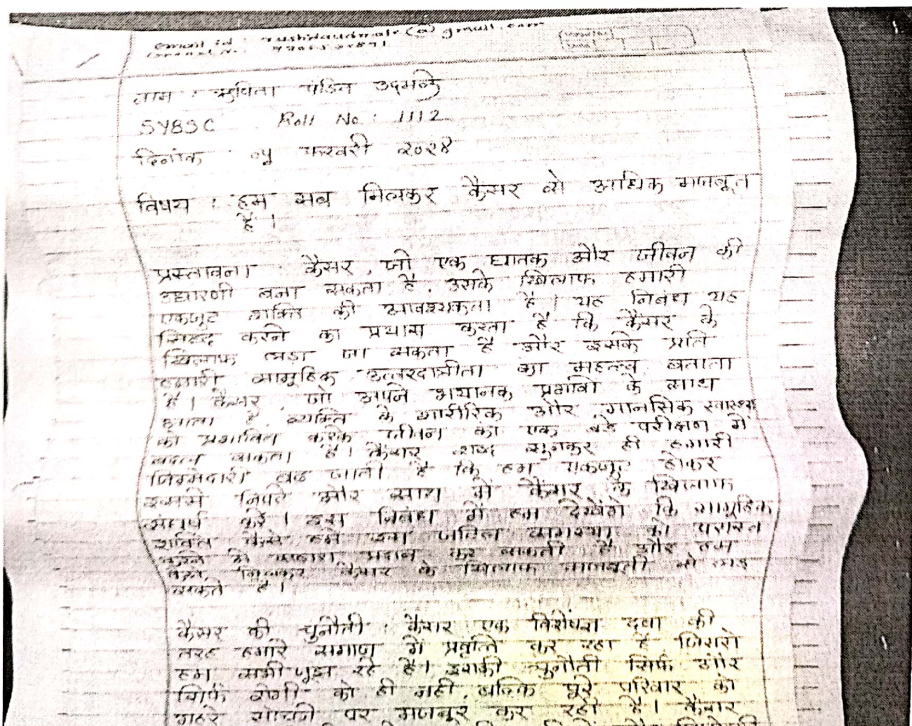 email id : rushidaudmale@gmail.com
नाम : ऋषिता पंडित उदमले
SYBSC Roll No : 1112
दिनांक ०५ फरवरी २०२४
विषय : हम सब मिलकर कैंसर से अधिक मजबूत
हैं ।
प्रस्तावना : कैंसर, जो एक घातक और जीवन की
बना सकता है, उसके खिलाफ हमारी
एकजूट शक्ति की आवश्यकता है । यह निबंध यह
सिध्द करने का प्रयास करता है कि कैंसर के
खिलाफ लड़ा जा सकता है और इसके प्रति
हमारी सामूहिक उत्तरदायीता का महत्व बताता
है । कैंसर जो अपने भयानक प्रभावों के साथ
है, व्यक्ति के शारीरिक और मानसिक स्वास्थ्य
को प्रभावित करके जीवन को एक बड़े परीक्षण में
बदल सकता है । कैंसर शब्द सुनकर ही हमारी
जिम्मेदारी बढ जाती है कि हम एकजूट होकर
इससे निपटे और साथ में कैंसर के खिलाफ
संघर्ष करें । इस निबंध में हम देखेंगे कि सामूहिक
शक्ति कैसे हमें इस जटिल समस्या को परास्त
करने में सहारा प्रदान कर सकती है और हम
मिलकर कैंसर के खिलाफ से लड
सकते है ।
कैंसर की चुनौती : कैंसर एक की
तरह हमारे समाज में कर रहा है जिससे
हम सभी जुझ रहे है । इसकी चुनौती सिर्फ और
सिर्फ रोगी को ही नही, बल्कि पूरे परिवार को
गहरे सोचने पर मजबूर कर रही है । कैंसर